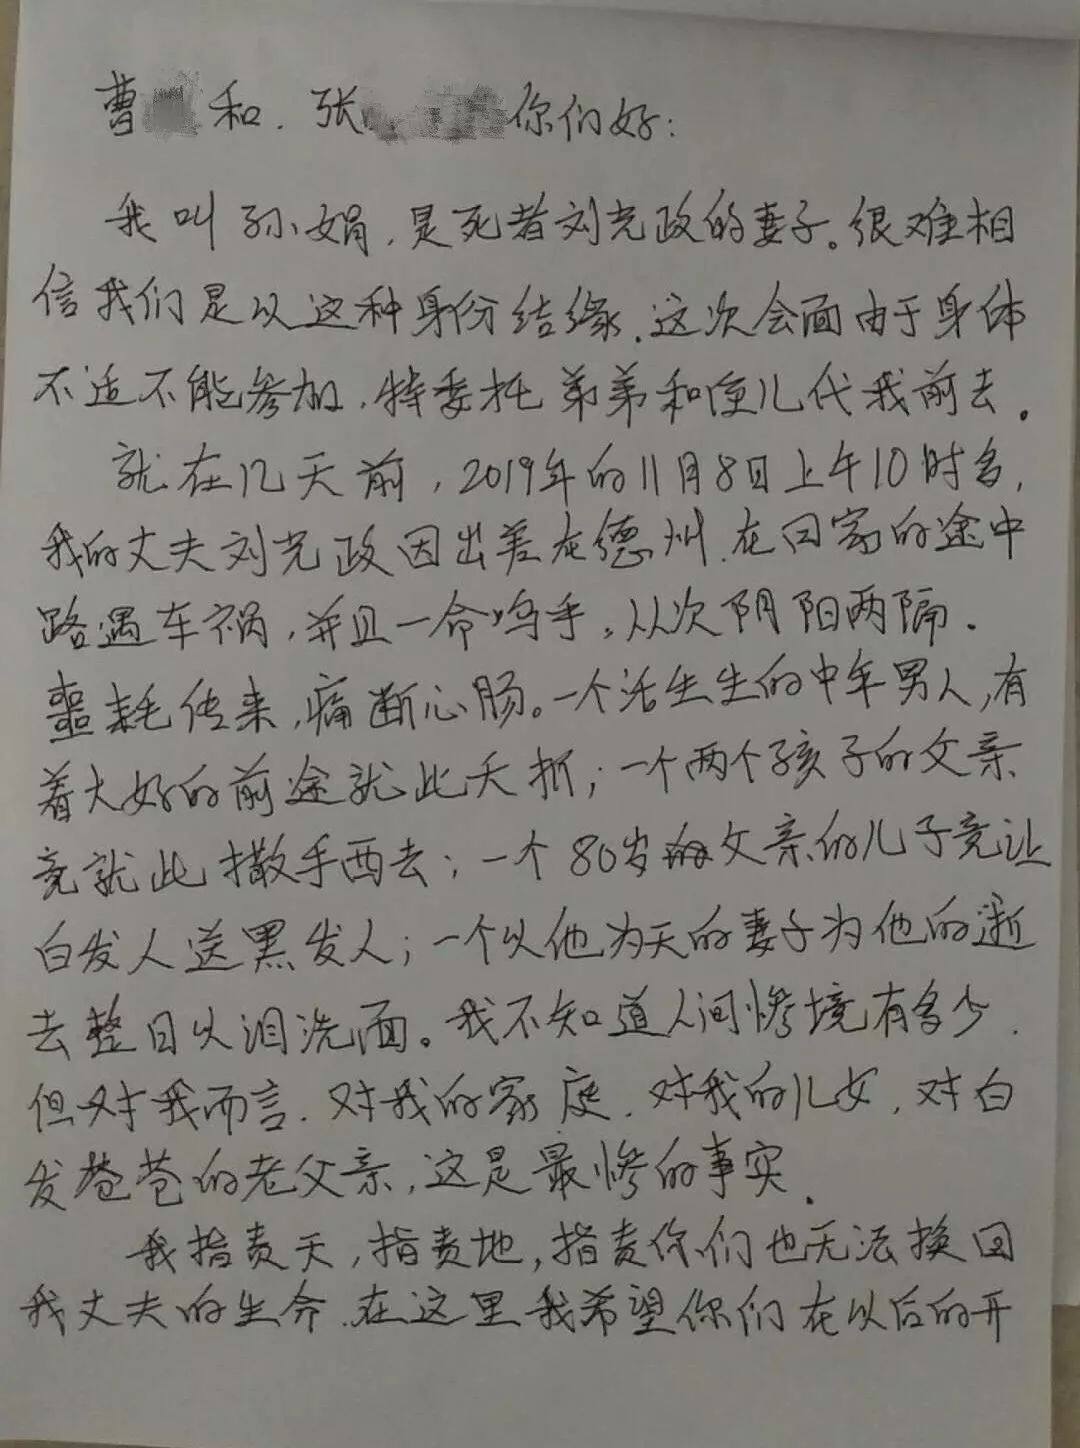 曹 和.张 你们好:
我叫孙娟,是死者刘光政的妻子。很难相
信我们是以这种身份结缘.这次会面由于身体
不适不能参加.特委托弟弟和侄儿代我前去。
就在几天前,2019年的11月8日上午10时多,
我的丈夫刘光政因出差在德州.在回家的途中
路遇车祸,并且一命呜乎。从次阴阳两隔.
噩耗传来,痛断心肠。一个活生生的中年男人,有
着大好的前途就此夭折;一个两个孩子的父亲
竟就此撒手西去;一个80岁的父亲的儿子竟让
白发人送黑发人;一个以他为天的妻子为他的逝
去整日以泪洗面。我不知道人间惨境有多少.
但对我而言.对我的家庭.对我的儿女,对白
发苍苍的老父亲,这是最惨的事实.
我指责天,指责地,指责你们也无法换回
我丈夫的生命.在这里我希望你们在以后的开